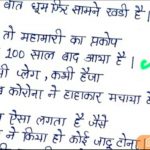 बात घूम फिर सामने खडी है |
तो महामारी का प्रकोप
100 साल बाद आया है |
प्लेग, कभी हैजा
कोरोना ने हाहाकार मचाया है
ऐसा लगता है जैसे
ने किया हो कोई जादू टोना